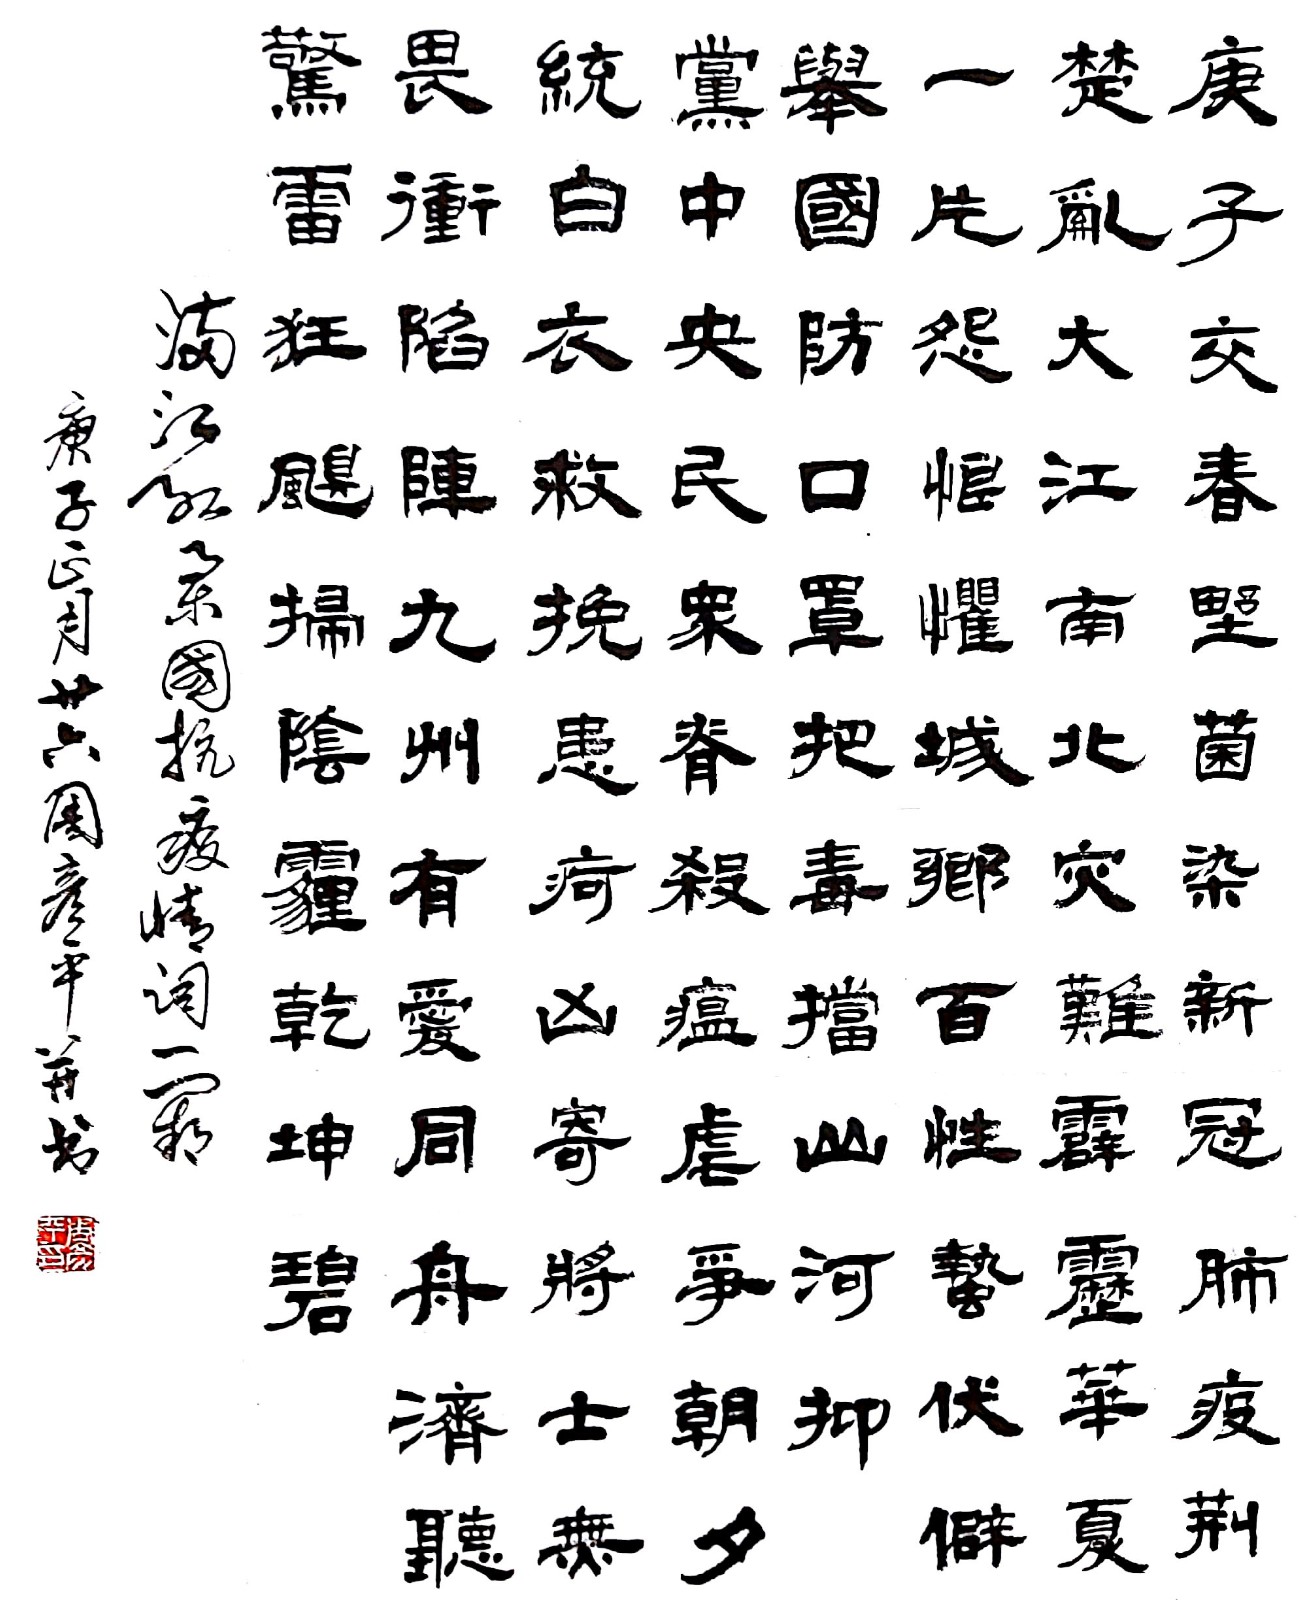 庚子交春野菌染新冠肺疫荆
楚亂大江南北灾難霹靂華夏
一片怨悵懼城鄉百性蟄伏僻
舉國防口罩把毒擋山河抑
黨中央民衆脊殺瘟虐爭朝夕
統白衣救挽患疴凶寄將士無
畏衝陷陣九州有愛同舟濟聽
驚雷狂颶掃陰霾乾坤碧
满江红举國抗疫情词一阕
庚子正月廿六周彦平并书
周彦平印